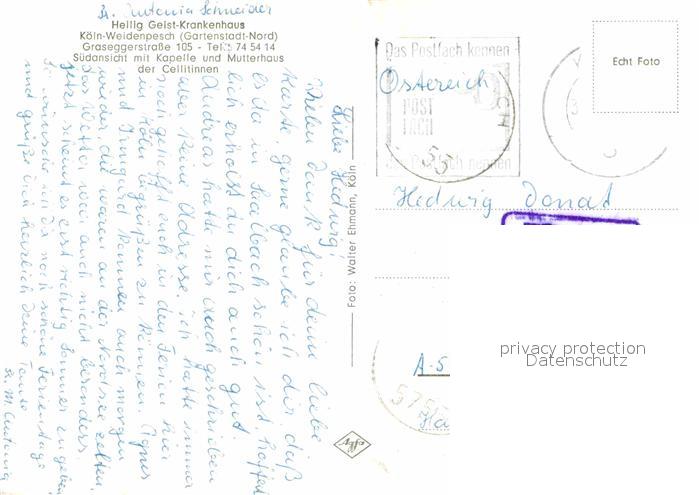 Sr. Antonia Schneider
Heilig Geist-Krankenhaus
Köln-Weidenpesch (Gartenstadt-Nord)
Graseggerstraße 105 - Tel.: 74 54 14
Südansicht mit Kapelle und Mutterhaus
der Cellitinnen
Liebe Hedwig!
Vielen Dank für deine liebe
Karte, gerne glaube ich dir daß
es da in Saalbach schön ist. hoffent
lich erholst du dich auch gut.
Andreas hatte mir auch geschrieben
aber keine Adresse. ich hatte immer
noch gehofft euch in den Ferien hier
in Köln begrüßen zu können. Agnes
und Irmgard kommen auch morgen
wieder die waren an der Nordsee zelten,
das Wetter war auch nicht besonders.
jetzt scheint es erst richtig Sommer zu geben.
So wünsche ich dir noch schöne Ferientage
und grüße dich herzlich deine Tante
Sr. M. Antonia
Foto: Walter Ehmann, Köln
Agfa
Das Postfach kennen
POST
FACH
das Postfach nennen
Östereich
55
Echt Foto
Hedwig Donat
A-5
575
privacy protection
Datenschutz